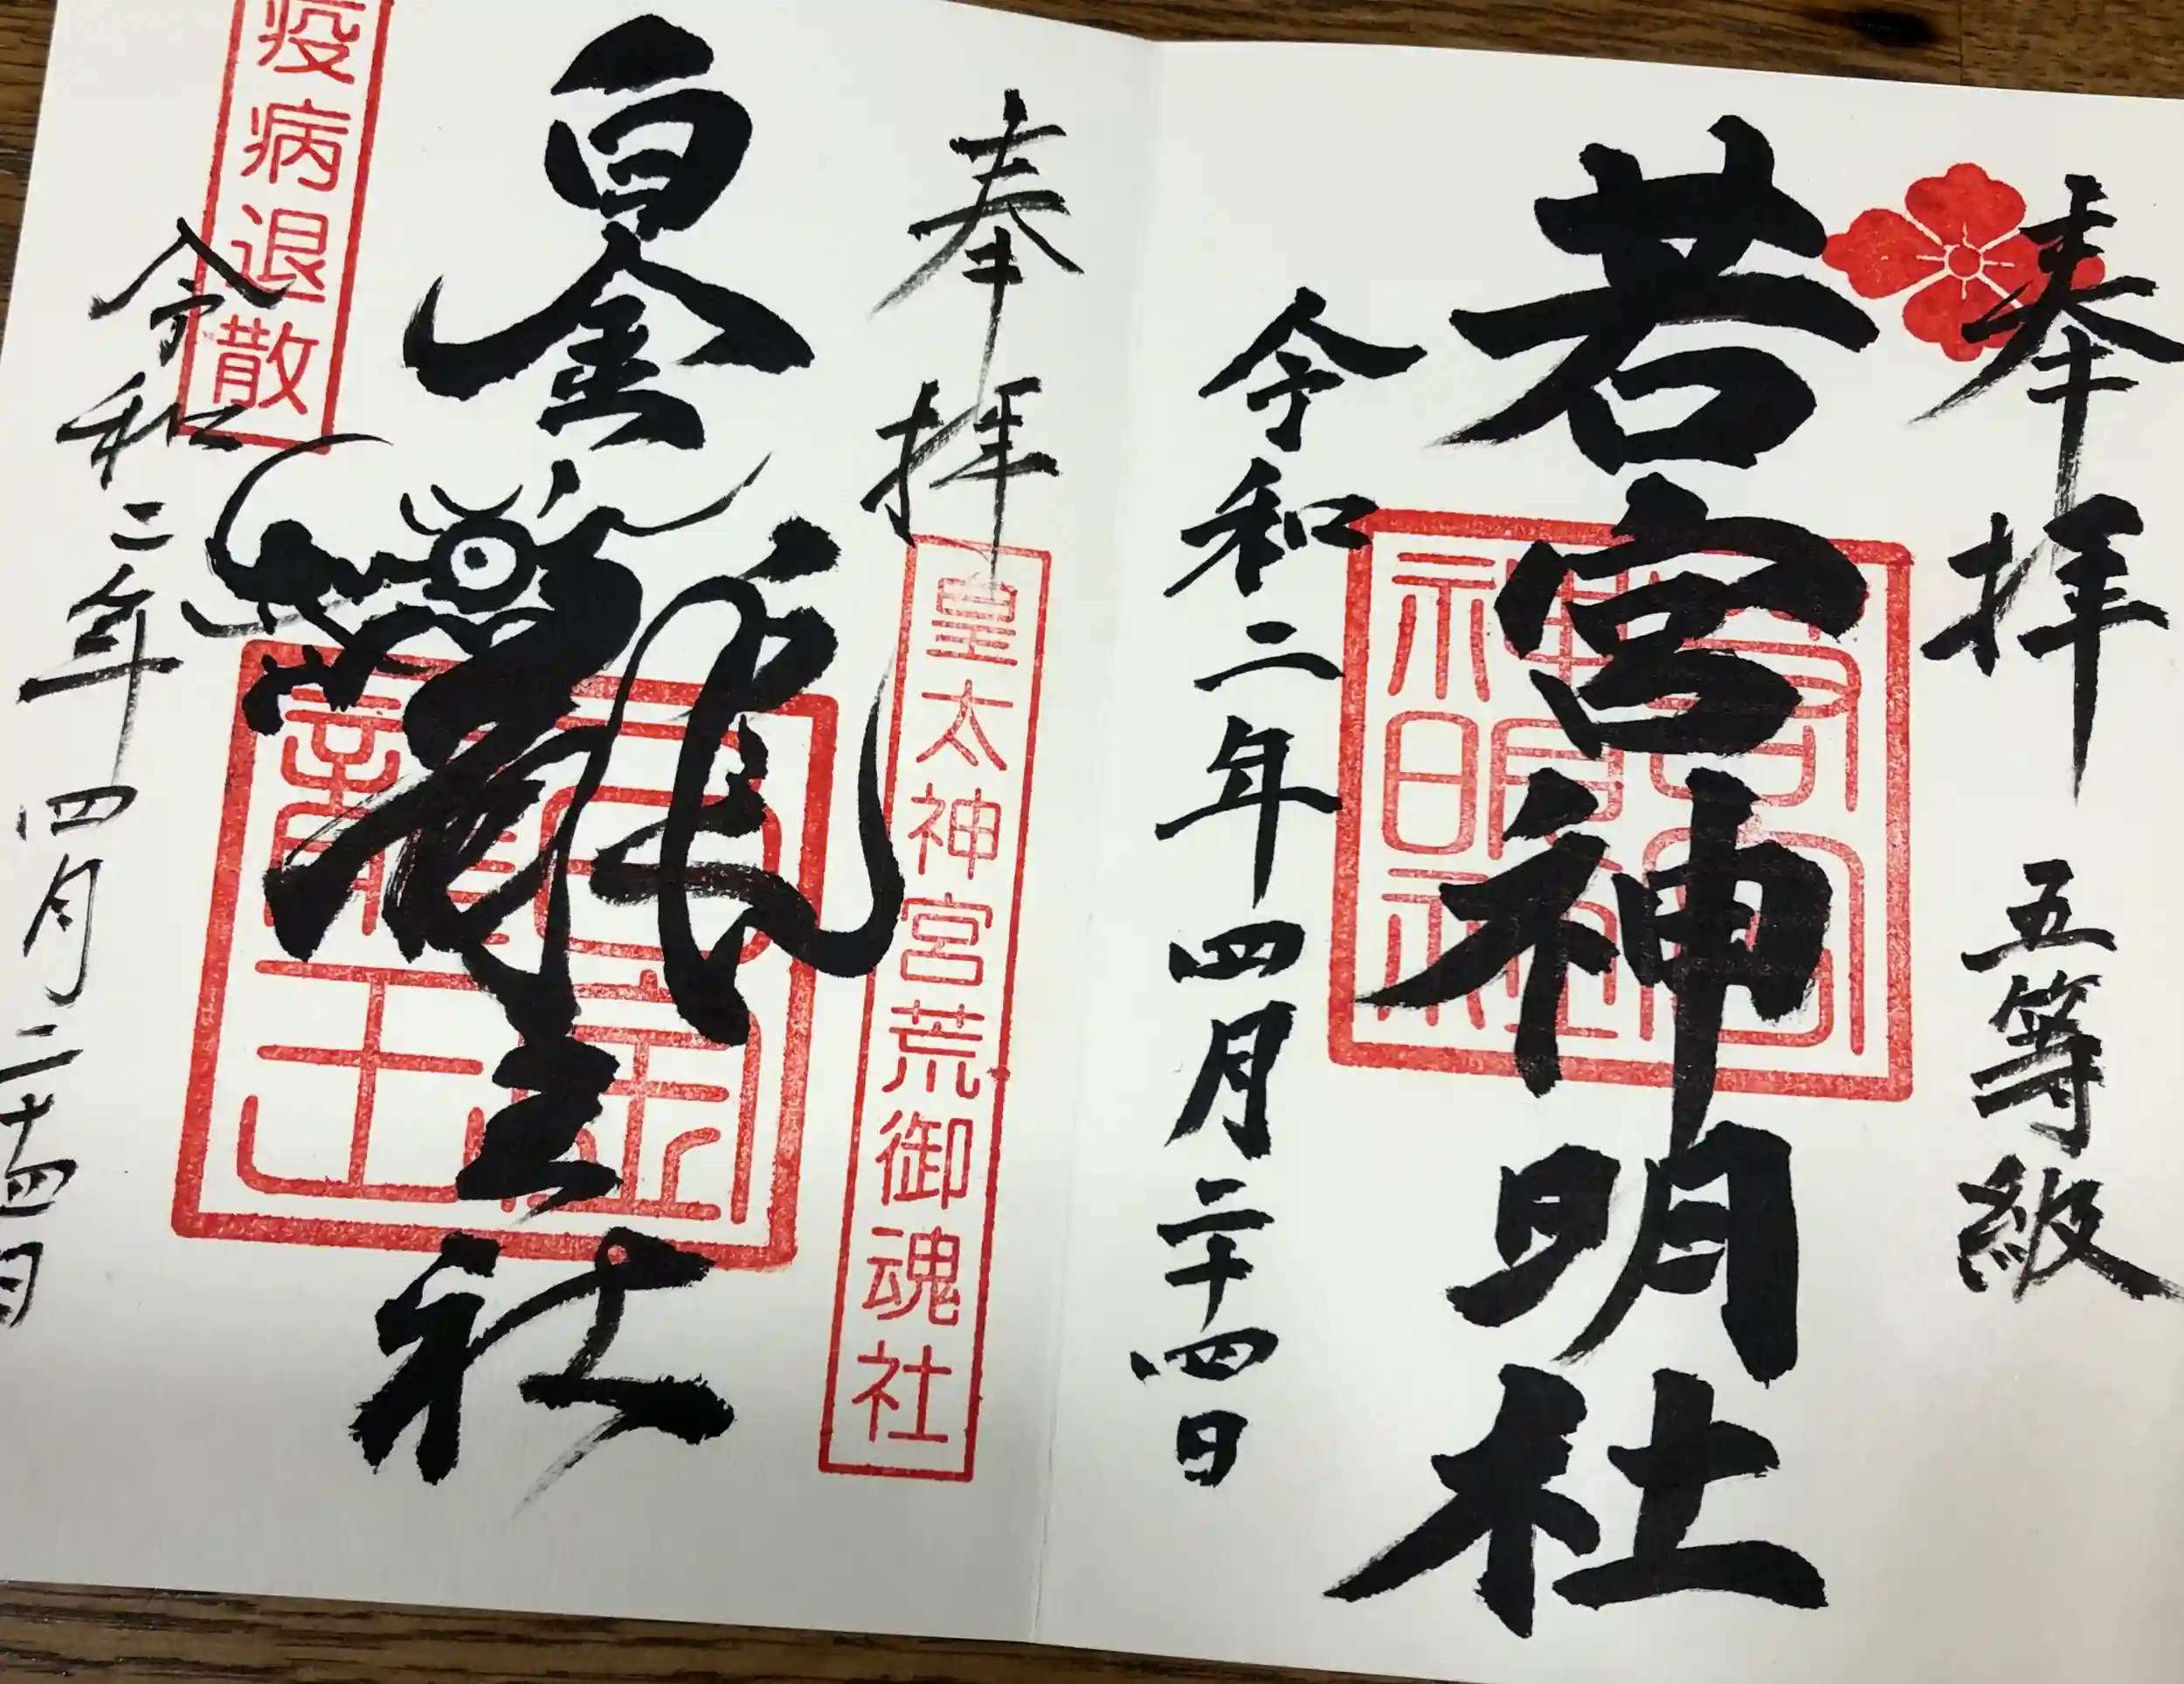 奉拝 五等級
若宮神明社
令和二年四月二十四日
奉拝
皇太神宮荒御魂社
白金龍王社
白金
龍王
疫病退散
令和二年四月二十四日